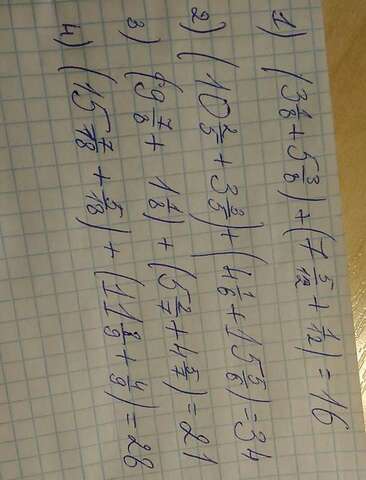 1) (3 1/8 + 5 3/8) + (7 5/12 + 1/12) = 16
2) (10 2/5 + 3 3/5) + (4 1/6 + 15 5/6) = 34
3) (9 7/8 + 1 1/8) + (5 2/7 + 4 5/7) = 21
4) (15 7/18 + 5/18) + (11 8/9 + 4/9) = 28